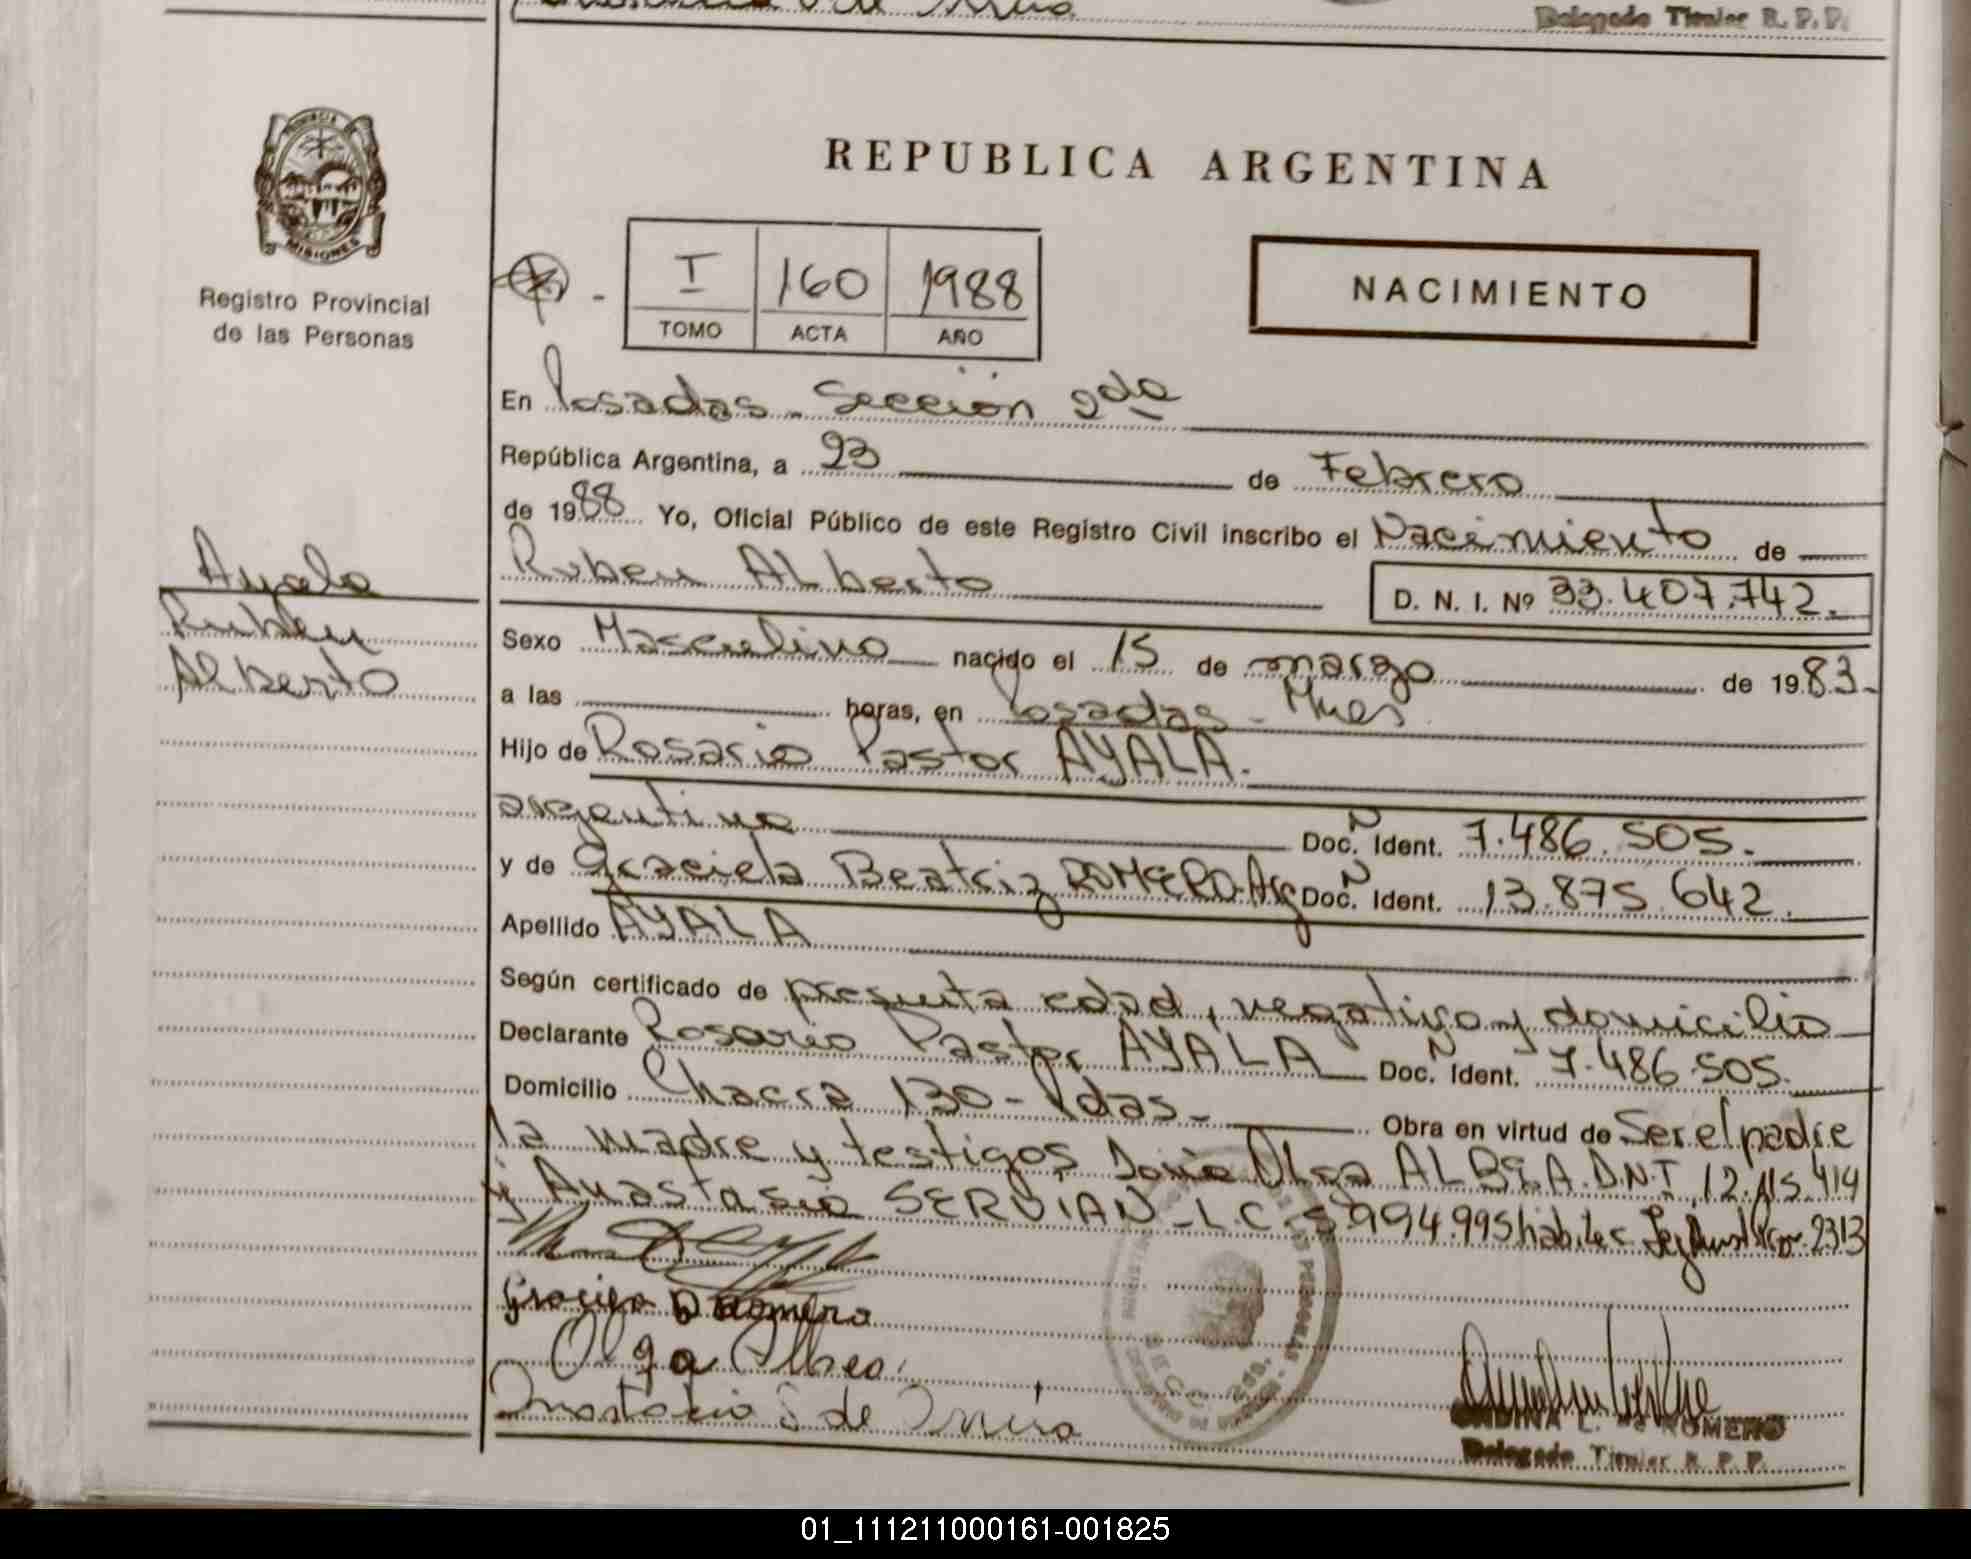 Delegado Titular R. P. P.
PROVINCIA DE
MISIONES
Registro Provincial
de las Personas
REPUBLICA ARGENTINA
I 160 1988
TOMO ACTA AÑO
NACIMIENTO
En Posadas - Sección 2da
República Argentina, a 23 de Febrero
de 1988 Yo, Oficial Público de este Registro Civil inscribo el Nacimiento de
Ruben ALberto
D. N. I. Nº 33.407.742.
Ayala
Ruben
ALberto
Sexo Masculino nacido el 15 de marzo de 1983-
a las horas, en Posadas - Mnes
Hijo de Rosario Pastor AYALA.
argentino Doc. Ident. 7.486.505.
y de Graciela Beatriz ROMERO-Arg Doc. Ident. 13.875.642.
Apellido AYALA
Según certificado de presunta edad, negativo y domicilio
Declarante Rosario Pastor AYALA Doc. Ident. 7.486.505.
Domicilio Chacra 130 - Pdas. Obra en virtud de Ser el padre
la madre y testigos Olga ALBEA.D.N.I 12.115.414
y Anastasia SERVIAN - L.C. 5.994.995 2313
Graciela B Romero
Olga Albea
Anastacia S de
ONDINA L. de ROMERO
Delegado Titular R. P. P.
01_111211000161-001825